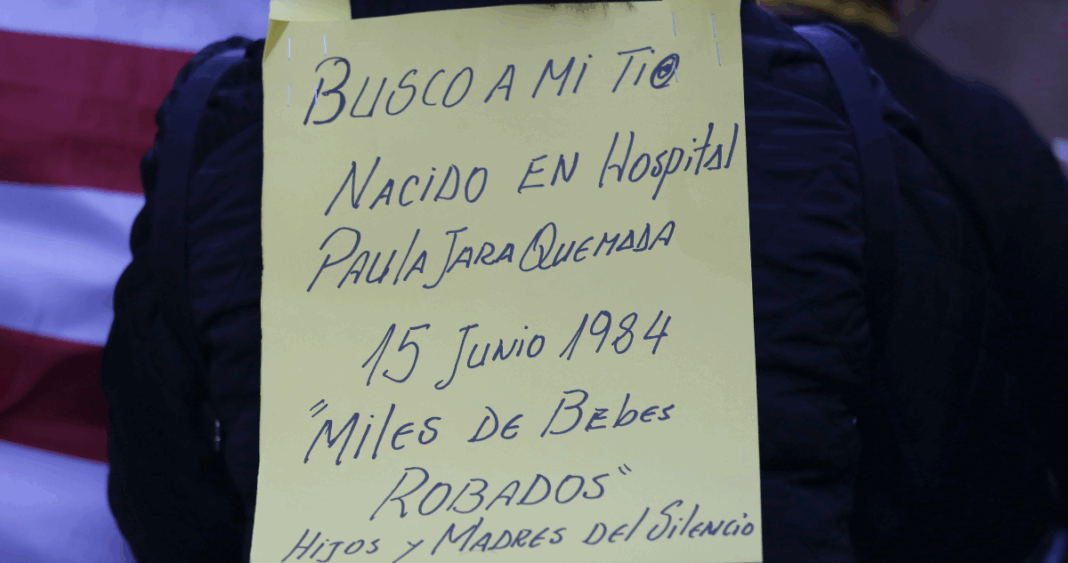 BUSCO A MI TIO
NACIDO EN HOSPITAL
PAULA JARA QUEMADA
15 JUNIO 1984
"MILES DE BEBES
ROBADOS"
HIJOS Y MADRES DEL SILENCIO